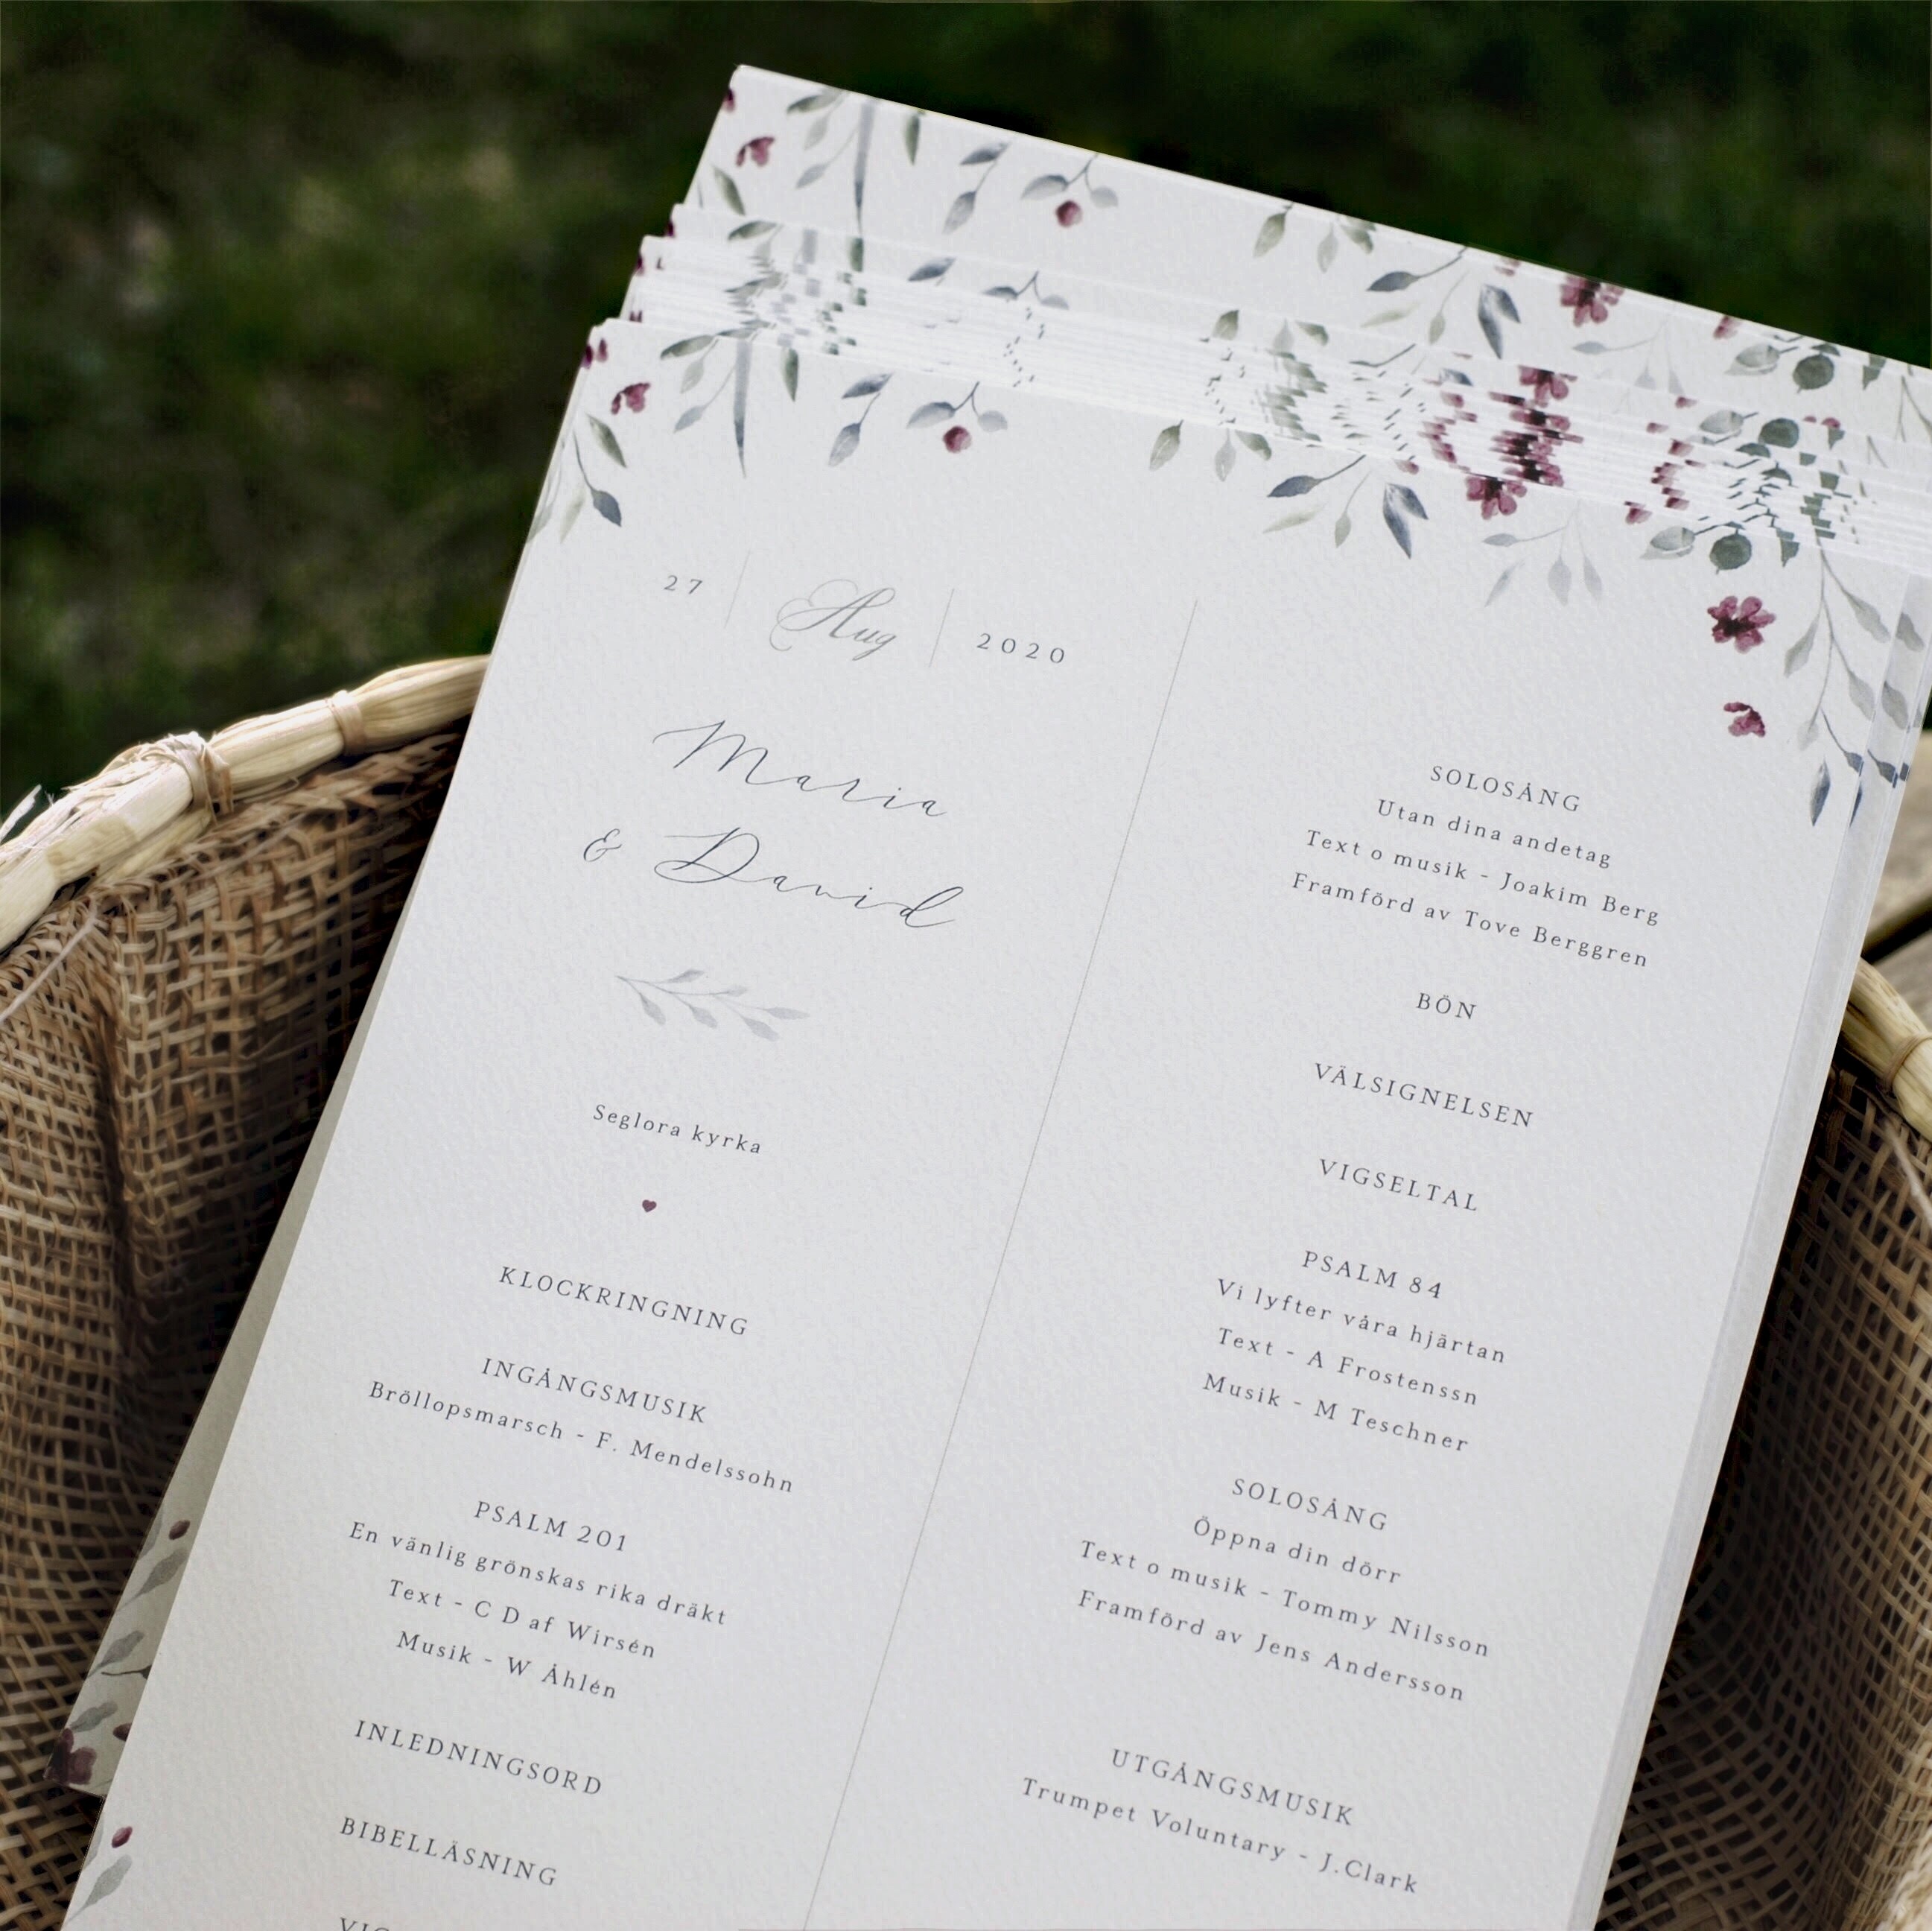 27 Aug 2020
Maria
& David
Seglora kyrka
KLOCKRINGNING
INGÅNGSMUSIK
Bröllopsmarsch - F. Mendelssohn
PSALM 201
En vänlig grönskas rika dräkt
Text - C D af Wirsén
Musik - W Åhlén
INLEDNINGSORD
BIBELLÄSNING
SOLOSÅNG
Utan dina andetag
Text o musik - Joakim Berg
Framförd av Tove Berggren
BÖN
VÄLSIGNELSEN
VIGSELTAL
PSALM 84
Vi lyfter våra hjärtan
Text - A Frostenssn
Musik - M Teschner
SOLOSÅNG
Öppna din dörr
Text o musik - Tommy Nilsson
Framförd av Jens Andersson
UTGÅNGSMUSIK
Trumpet Voluntary - J.Clark